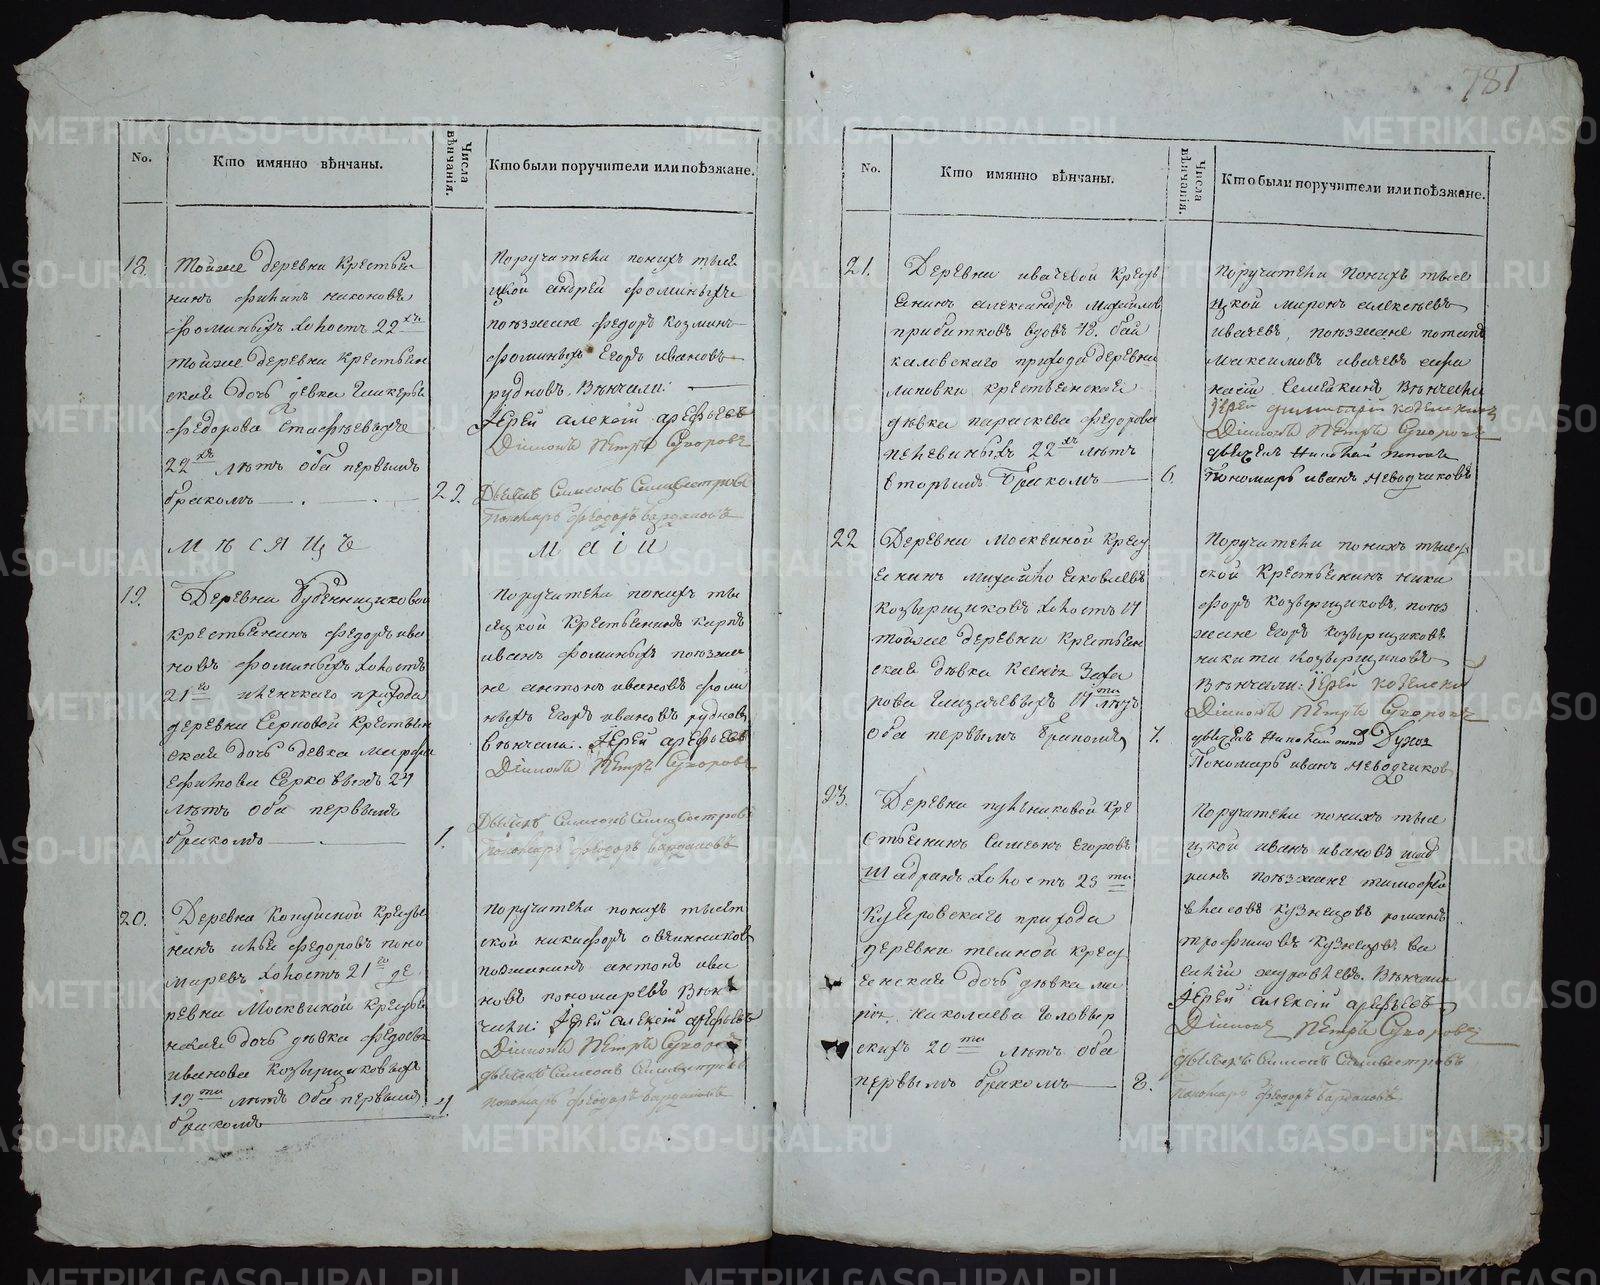 781
No.
Кто имянно вѣнчаны.
Числа вѣнчанія.
Кто были поручители или поѣзжане.
18.
тойже деревни крестья
нинъ филипъ никоновъ
фоминыхъ холостъ 22хъ
тойже деревни крестьян
ская дочь девка гликерья
федорова
22хъ лѣтъ оба первымъ
бракомъ
29.
поручители понихъ тыся
цкой андрей фоминыхъ
поѣзжане федоръ козминъ
фоминыхъ егоръ ивановъ
рудновъ, вѣнчали:
Іерей алексій арефьевъ
Діаконъ Петръ
Дьячекъ Симеонъ Силивестровъ
Пономарь феодоръ
мѣсяцъ
маій
19.
Деревни бубенщиковой
крестьянинъ федоръ ива
новъ фоминыхъ холостъ
21го прихода
деревни серковой крестьян
ская дочь девка марфа
ефимова серковыхъ 24
лѣтъ оба первымъ
бракомъ
1.
поручители понихъ ты
сяцкой крестьянинъ карпъ
иванъ фоминыхъ поѣзжа
не антонъ ивановъ фоми
ныхъ егоръ ивановъ рудновъ
вѣнчали: Іерей арефьевъ
Діаконъ Петръ
Дьячекъ Симеонъ Силивестровъ
Пономарь феодоръ
20.
Деревни крестья
нинъ илья федоровъ поно
маревъ холостъ 21го де
ревни москвиной крестья
нская дочь дѣвка федосья
иванова козырщиковыхъ
19ти лѣтъ оба первымъ
бракомъ
4.
поручители понихъ тысят
ской никифоръ овчинников
поѣзжанинъ антонъ ива
новъ пономаревъ вѣн
чали: Іерей алексій арефьевъ
Діаконъ Петръ
дьячекъ Симеонъ Силивестровъ
пономарь феодоръ
No.
Кто имянно вѣнчаны.
Числа вѣнчанія.
Кто были поручители или поѣзжане.
21.
Деревни ивачевой кресть
янинъ александръ михайлов
прибитковъ вдовъ 48. бай
каловскаго прихода деревни
липовки крестьянская
дѣвка параскева федорова
пелевиныхъ 22хъ лѣтъ
вторымъ бракомъ
6.
поручители понихъ тыся
цкой миронъ алексѣевъ
ивачевъ, поѣзжане потапъ
максимовъ ивачевъ афа
насій семейкинъ вѣнчали
іерей димитрій
Діаконъ Петръ
дьячекъ Николай попов
Пономарь иванъ неводчиковъ
22
Деревни москвиной крест
янинъ михайло яковлевъ
козырщиковъ холостъ 17
тойже деревни крестьян
ская дѣвка ксенія заха
рова 17ти лѣтъ
оба первымъ бракомъ
7.
поручители понихъ тысят
ской крестьянинъ ники
форъ козырщиковъ, поѣз
жане егоръ козырщиковъ
никита козырщиковъ
вѣнчали: іерей
Діаконъ Петръ
дьячекъ Николай
Пономарь иванъ неводчиков
23.
Деревни пульниковой кре
стьянинъ симеонъ егоровъ
шадринъ холостъ 25ти
прихода
деревни темной крест
янская дочь дѣвка ма
рія николаева головыр
скихъ 20ти лѣтъ оба
первымъ бракомъ
8.
поручители понихъ тыся
цкой иванъ ивановъ шад
ринъ поѣзжане тимофѣй
власовъ кузнецовъ романъ
трофимовъ кузнецовъ ва
силій журавлевъ. вѣнчали
Іерей алексій арефьевъ
Діаконъ Петръ
дьячекъ Симеонъ Силивестровъ
Пономарь феодоръ
METRIKI.GASO-URAL.RU